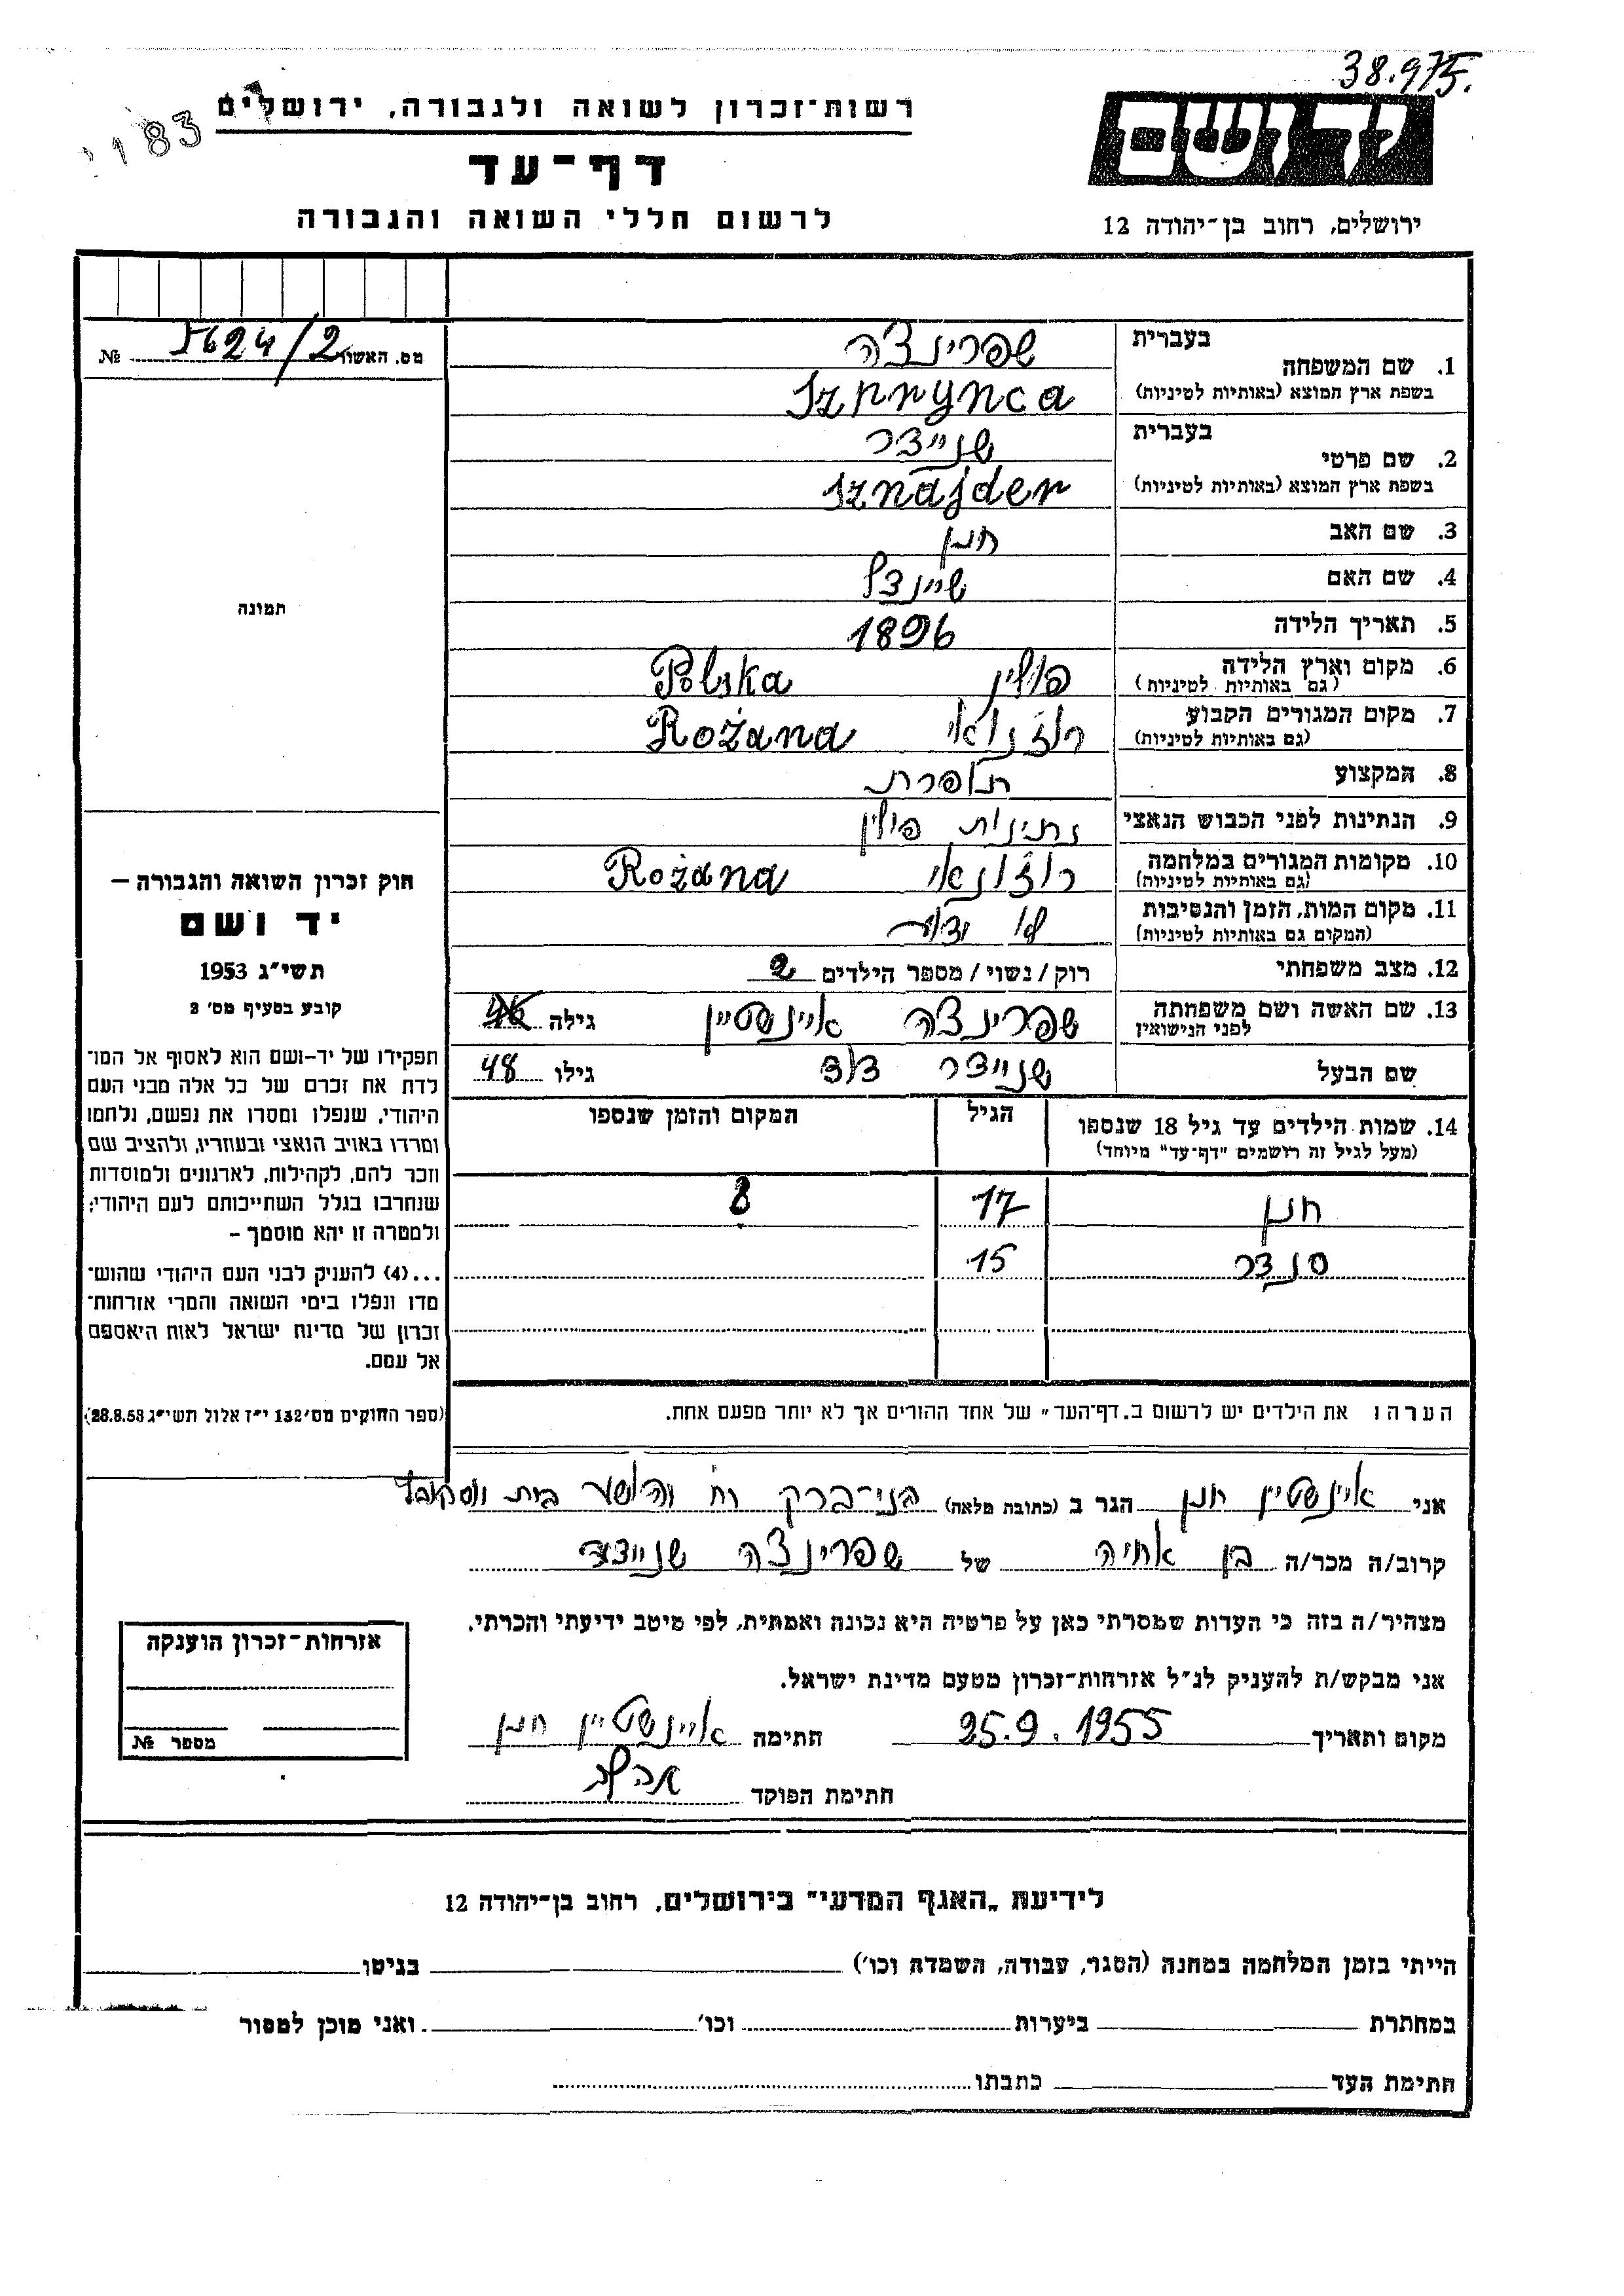 38.975.
183
רשות־זכרון לשואה ולגבורה, ירושלים
יד ושם
דף־עד
לרשום חללי השואה והגבורה
ירושלים, רחוב בן־יהודה 12
מס. האשור 5624/2 №
בעברית שפרינצה
1. שם המשפחה
בשפת ארץ המוצא (באותיות לטיניות) Szprynca
בעברית שניידר
2. שם פרטי
בשפת ארץ המוצא (באותיות לטיניות) Sznajder
3. שם האב חנן
4. שם האם שיינדל
5. תאריך הלידה 1896
6. מקום וארץ הלידה פולין Polska
(גם באותיות לטיניות)
7. מקום המגורים הקבוע רוז'נואי Rożana
(גם באותיות לטיניות)
8. המקצוע תופרת
9. הנתינות לפני הכבוש הנאצי נתינות פולין
10. מקומות המגורים במלחמה Rożana
(גם באותיות לטיניות)
11. מקום המות, הזמן והנסיבות לא ידוע
(המקום גם באותיות לטיניות)
12. מצב משפחתי רוק/נשוי/ מספר הילדים 2
13. שם האשה ושם משפחתה שפרינצה איינשטיין גילה
לפני הנישואין
שם הבעל שניידר דוד גילו 48
14. שמות הילדים עד גיל 18 שנספו הגיל המקום והזמן שנספו
(מעל לגיל זה רושמים "דף־עד" מיוחד)
חנן 17
סנדר 15
הערה: את הילדים יש לרשום ב„דף־העד" של אחד ההורים אך לא יותר מפעם אחת.
תמונה
חוק זכרון השואה והגבורה –
יד ושם
תשי"ג 1953
קובע בסעיף מס' 2
תפקידו של יד-ושם הוא לאסוף אל המו־
לדת את זכרם של כל אלה מבני העם
היהודי, שנפלו ומסרו את נפשם, נלחמו
ומרדו באויב הנאצי ובעוזריו, ולהציב שם
וזכר להם, לקהילות, לארגונים ולמוסדות
שנחרבו בגלל השתייכותם לעם היהודי;
ולמטרה זו יהא מוסמך –
...(4) להעניק לבני העם היהודי שהוש־
מדו ונפלו בימי השואה והמרי אזרחות־
זכרון של מדינת ישראל לאות היאספם
אל עמם.
(ספר החוקים מס' 132 י"ז אלול תשי"ג 28.8.53)
אני איינשטיין חנן הגר ב (כתובת מלאה) בני־ברק רח
קרוב/ה מכר/ה בן אחיה של שפרינצה שניידר
מצהיר/ה בזה כי העדות שמסרתי כאן על פרטיה היא נכונה ואמתית, לפי מיטב ידיעתי והכרתי.
אני מבקש/ת להעניק לנ"ל אזרחות-זכרון מטעם מדינת ישראל.
מקום ותאריך 25.9.1955 חתימה איינשטיין חנן
חתימת הפוקד
אזרחות-זכרון הוענקה
מספר №
לידיעת „האגף המדעי" בירושלים, רחוב בן-יהודה 12
הייתי בזמן המלחמה במחנה (הסגר, עבודה, השמדה וכו') בגיטו
במחתרת ביערות וכו' ואני מוכן למסור
חתימת העד כתבתו